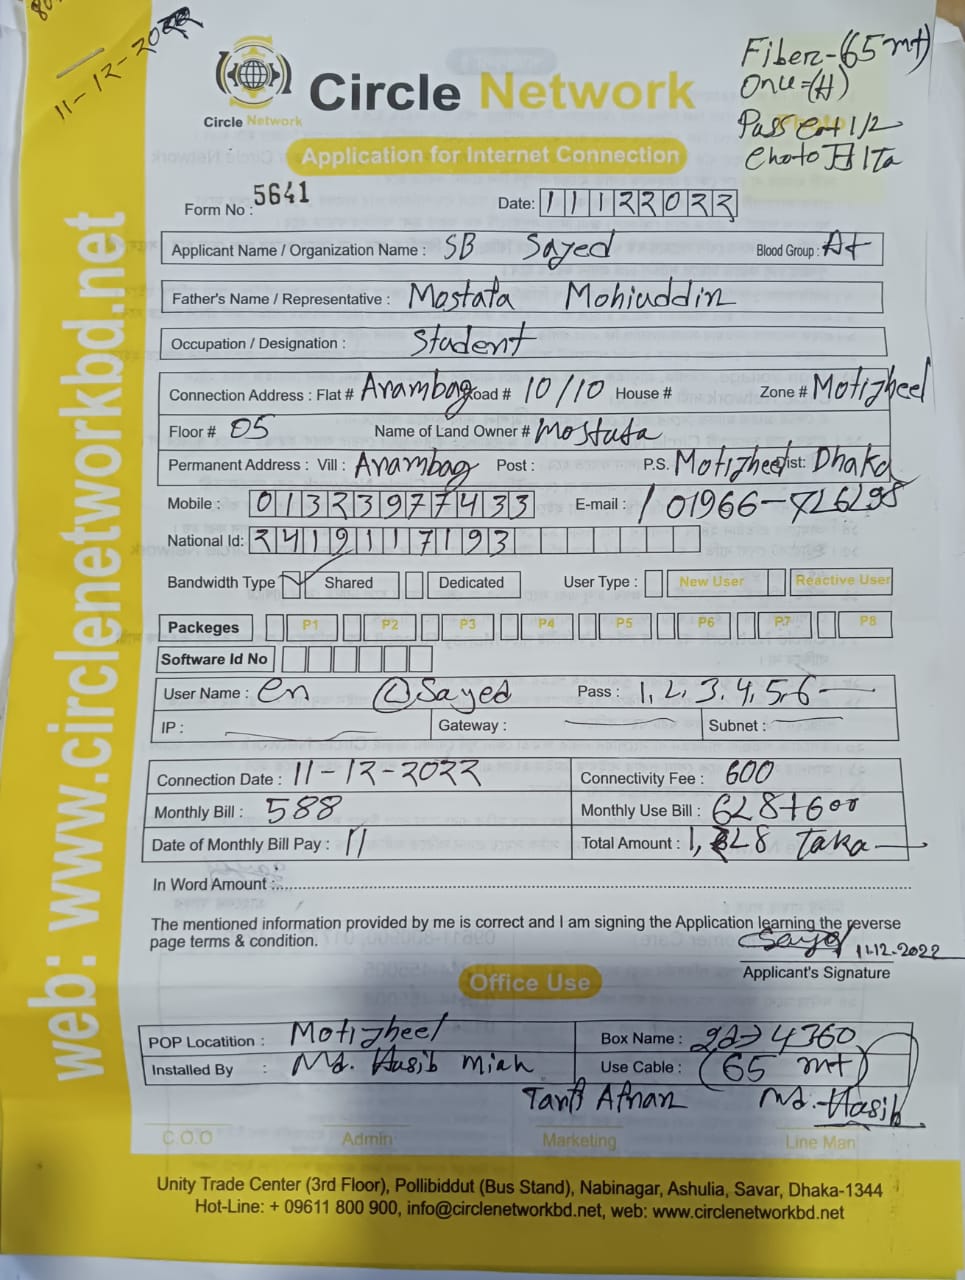 11-12-2022
Fiber-(65 mt)
Onu=(H)
Circle Network
Circle Network
Photo
Application for Internet Connection
Form No : 5641
Date: 11122022
Applicant Name / Organization Name : SB Sayed Blood Group : A+
Father's Name / Representative : Mostafa Mohiuddin
Occupation / Designation : Student
Connection Address : Flat # Arambag Road # 10/10 House # Zone # Motijheel
Floor # 05 Name of Land Owner # Mostafa
Permanent Address : Vill : Arambag Post : P.S. Motijheel Dist: Dhaka
Mobile : 01323977433 E-mail : / 01966-726298
National Id: 2419117193
Bandwidth Type ✓ Shared Dedicated User Type : New User Reactive User
Packeges P1 P2 P3 P4 P5 P6 P7 P8
Software Id No
User Name : cn @Sayed Pass : 1,2,3,4,5,6
IP : Gateway : Subnet :
Connection Date : 11-12-2022 Connectivity Fee : 600
Monthly Bill : 588 Monthly Use Bill : 628+600
Date of Monthly Bill Pay : 11 Total Amount : 1,228 Taka
In Word Amount :
The mentioned information provided by me is correct and I am signing the Application learning the reverse
page terms & condition.
Sayed 11.12.2022
Applicant's Signature
Office Use
POP Locatition : Motijheel Box Name : 4360
Installed By : Md. Hasib Miah Use Cable : (65 mt)
Afnan Md. Hasib
C.O.O Admin Marketing Line Man
Unity Trade Center (3rd Floor), Pollibiddut (Bus Stand), Nabinagar, Ashulia, Savar, Dhaka-1344
Hot-Line: + 09611 800 900, info@circlenetworkbd.net, web: www.circlenetworkbd.net
web: www.circlenetworkbd.net